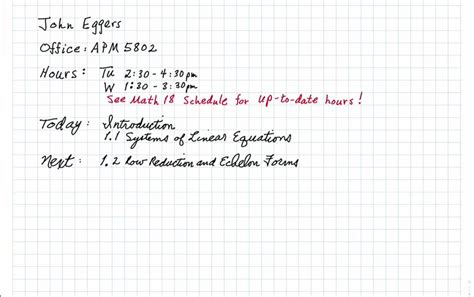 John Eggers
Office: APM 5802
Hours: Tu 2:30 - 4:30 pm
W 1:30 - 3:30 pm
See Math 18 Schedule for up-to-date hours!
Today: Introduction
1.1 Systems of Linear Equations
Next: 1.2 Row Reduction and Echelon Forms